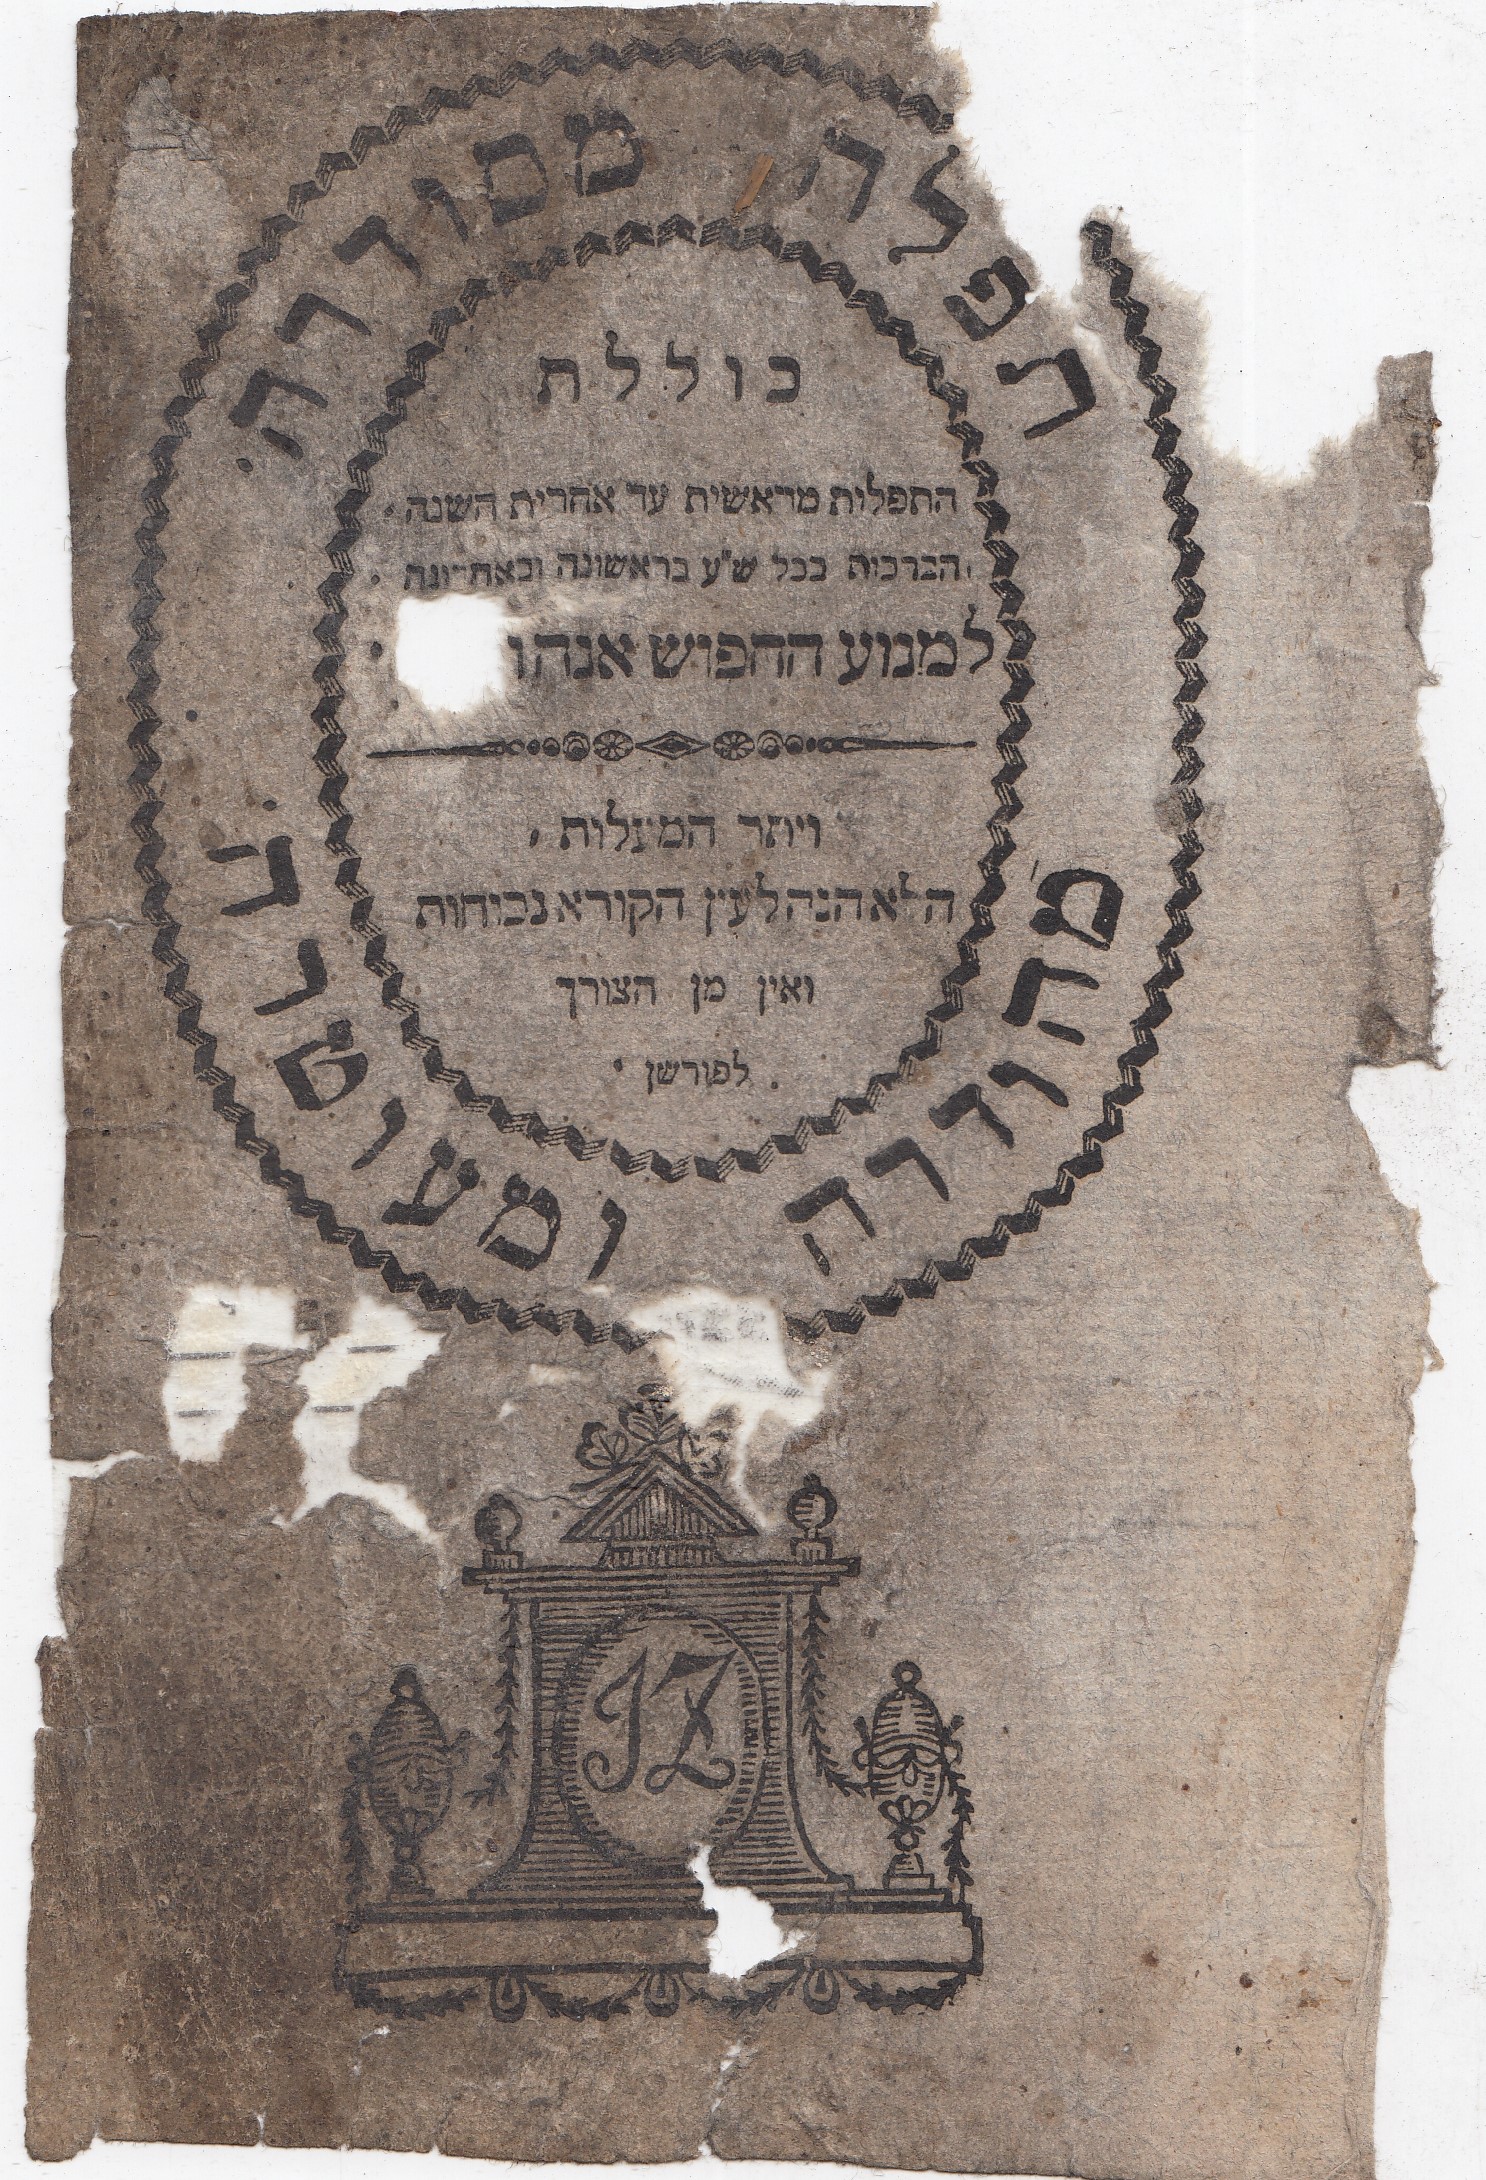 תפלה מסודרה
כוללת
התפלות מראשית עד אחרית השנה
הברכות בכל ש"ע בראשונה ובאחרונה
למנוע החפוש אנהו
ויתר המעלות
הלא הנה לעין הקורא נכוחות
ואין מן הצורך
לפורשן
מהודרה ומעוטרב
JZ